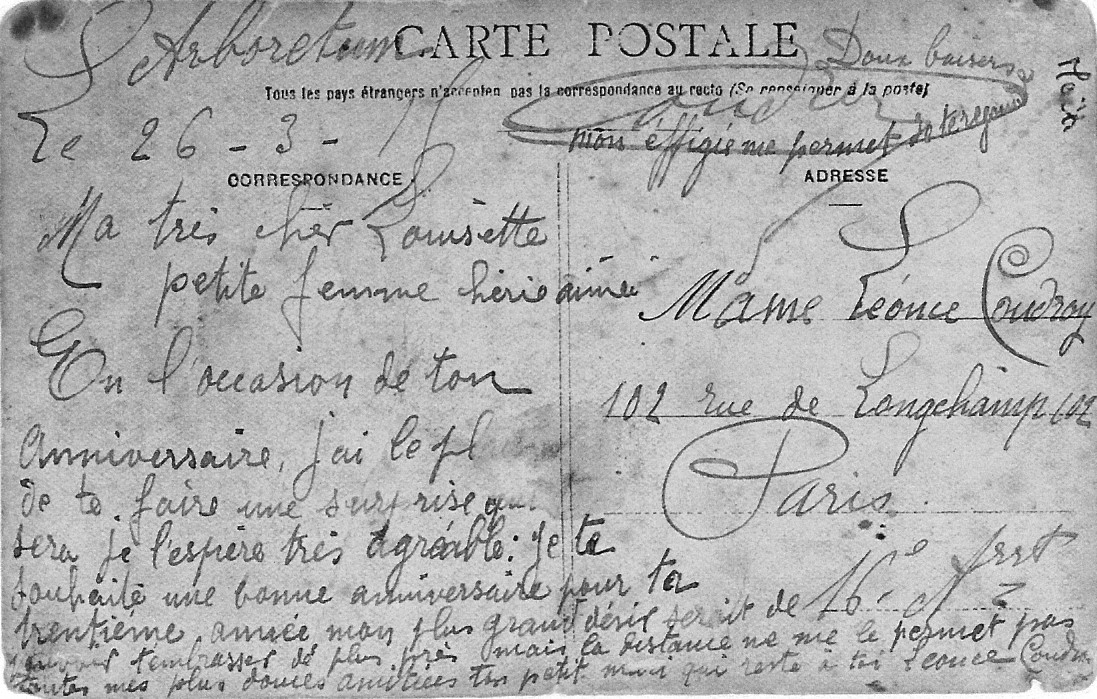 L'Arboretum
CARTE POSTALE
Doux baisers
Tous les pays étrangers n'acceptent pas la correspondance au recto (Se renseigner à la poste)
Le 26-3-
mon éffigie me permet de te
CORRESPONDANCE
ADRESSE
Ma très cher Louisette
petite femme aimée
En l'occasion de ton
anniversaire, j'ai le
de te faire une surprise qui
sera je l'espère très agréable: je te
souhaite une bonne anniversaire pour ta
trentième année mon plus grand désir serait de
pouvoir t'embrasser de plus près mais la distance ne me le permet pas
toutes mes plus douces amitiées ton petit mari qui reste à toi Léonce Coudray
Mame Léonce Coudray
102 rue de Longchamp 102
Paris
16e Arrt